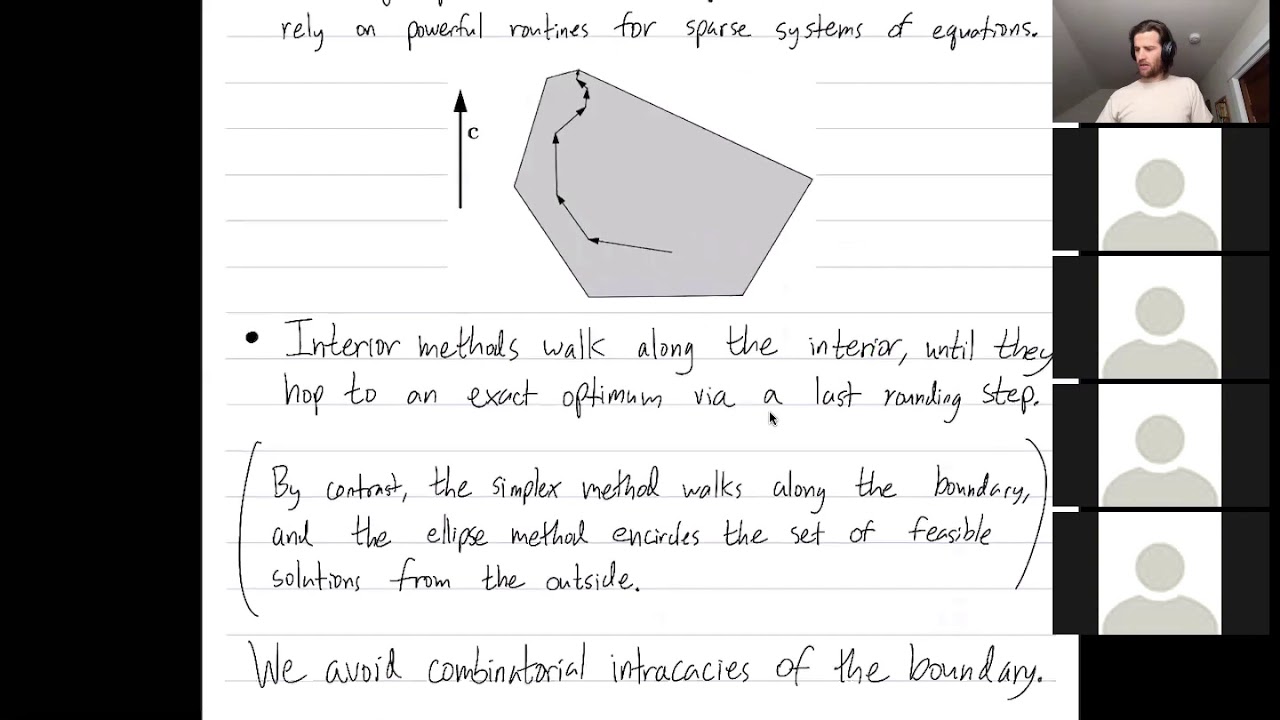 rely on powerful routines for sparse systems of equations.
c
• Interior methods walk along the interior, until they
hop to an exact optimum via a last rounding step.
(By contrast, the simplex method walks along the boundary,
and the ellipse method encircles the set of feasible
solutions from the outside.)
We avoid combinatorial intracacies of the boundary.